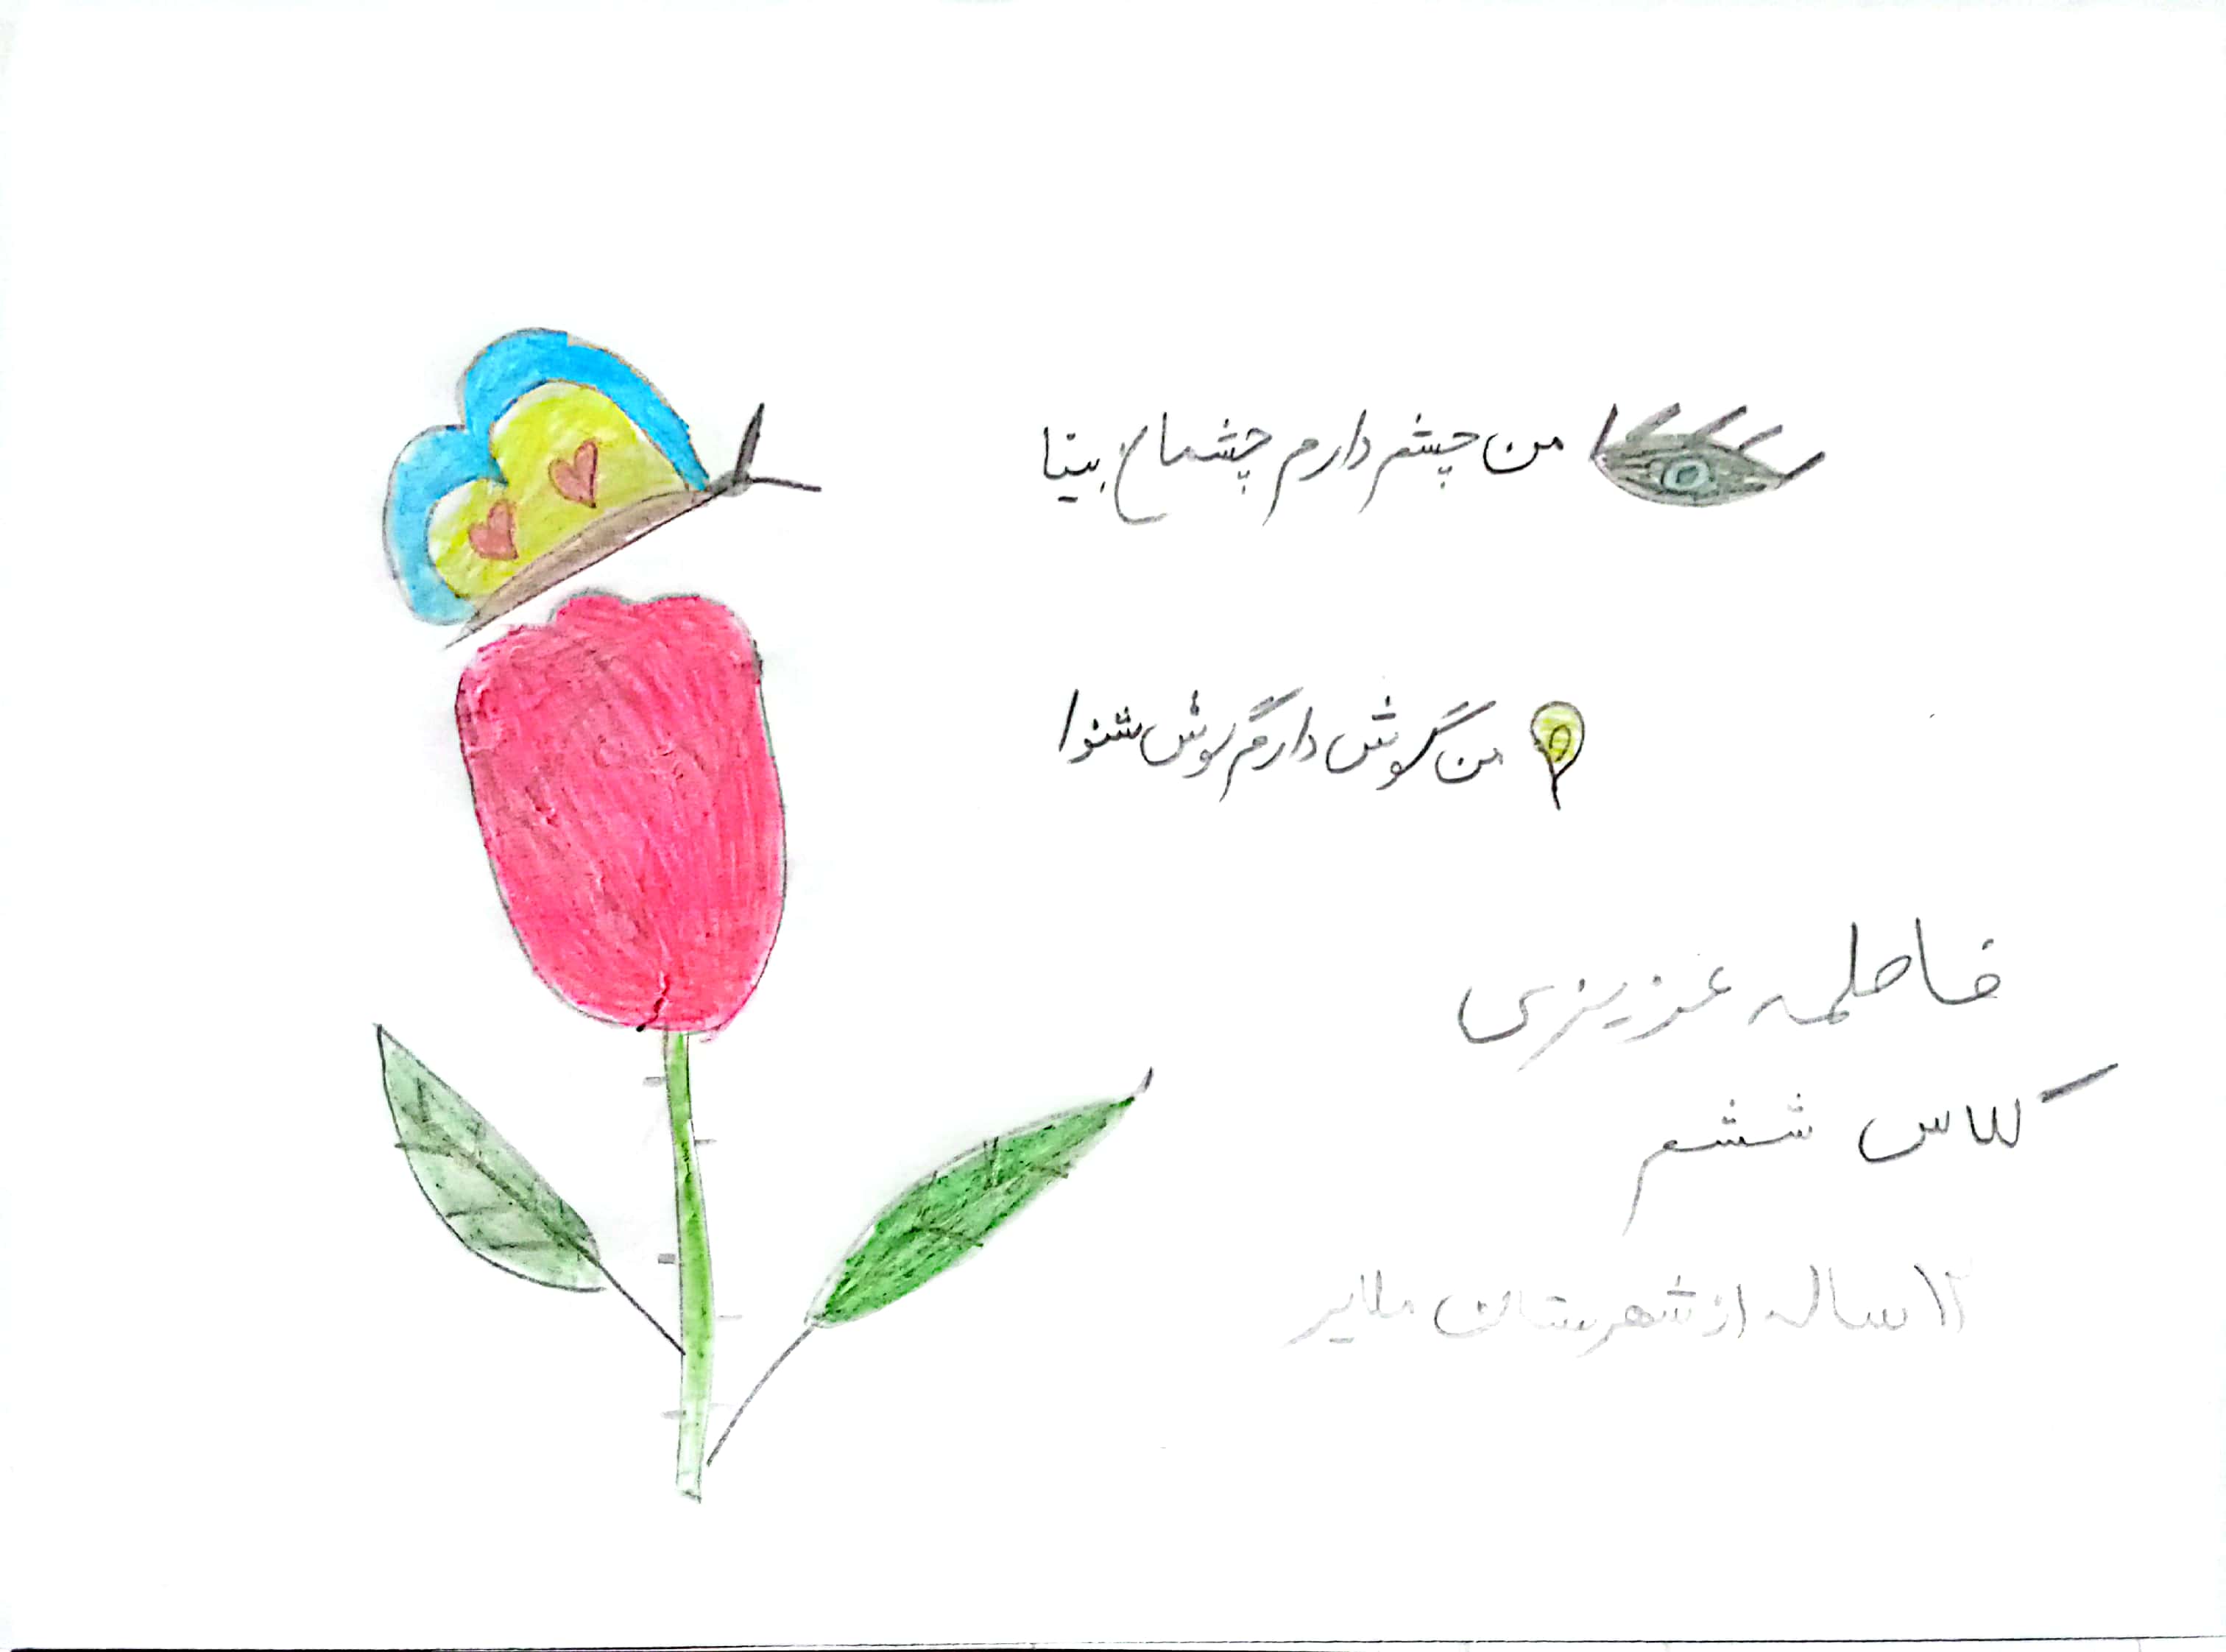 من چشم دارم چشمان بینا
من گوش دارم گوش شنوا
فاطمه عزیزی
کلاس ششم
۱۲ ساله از شهرستان ملایر